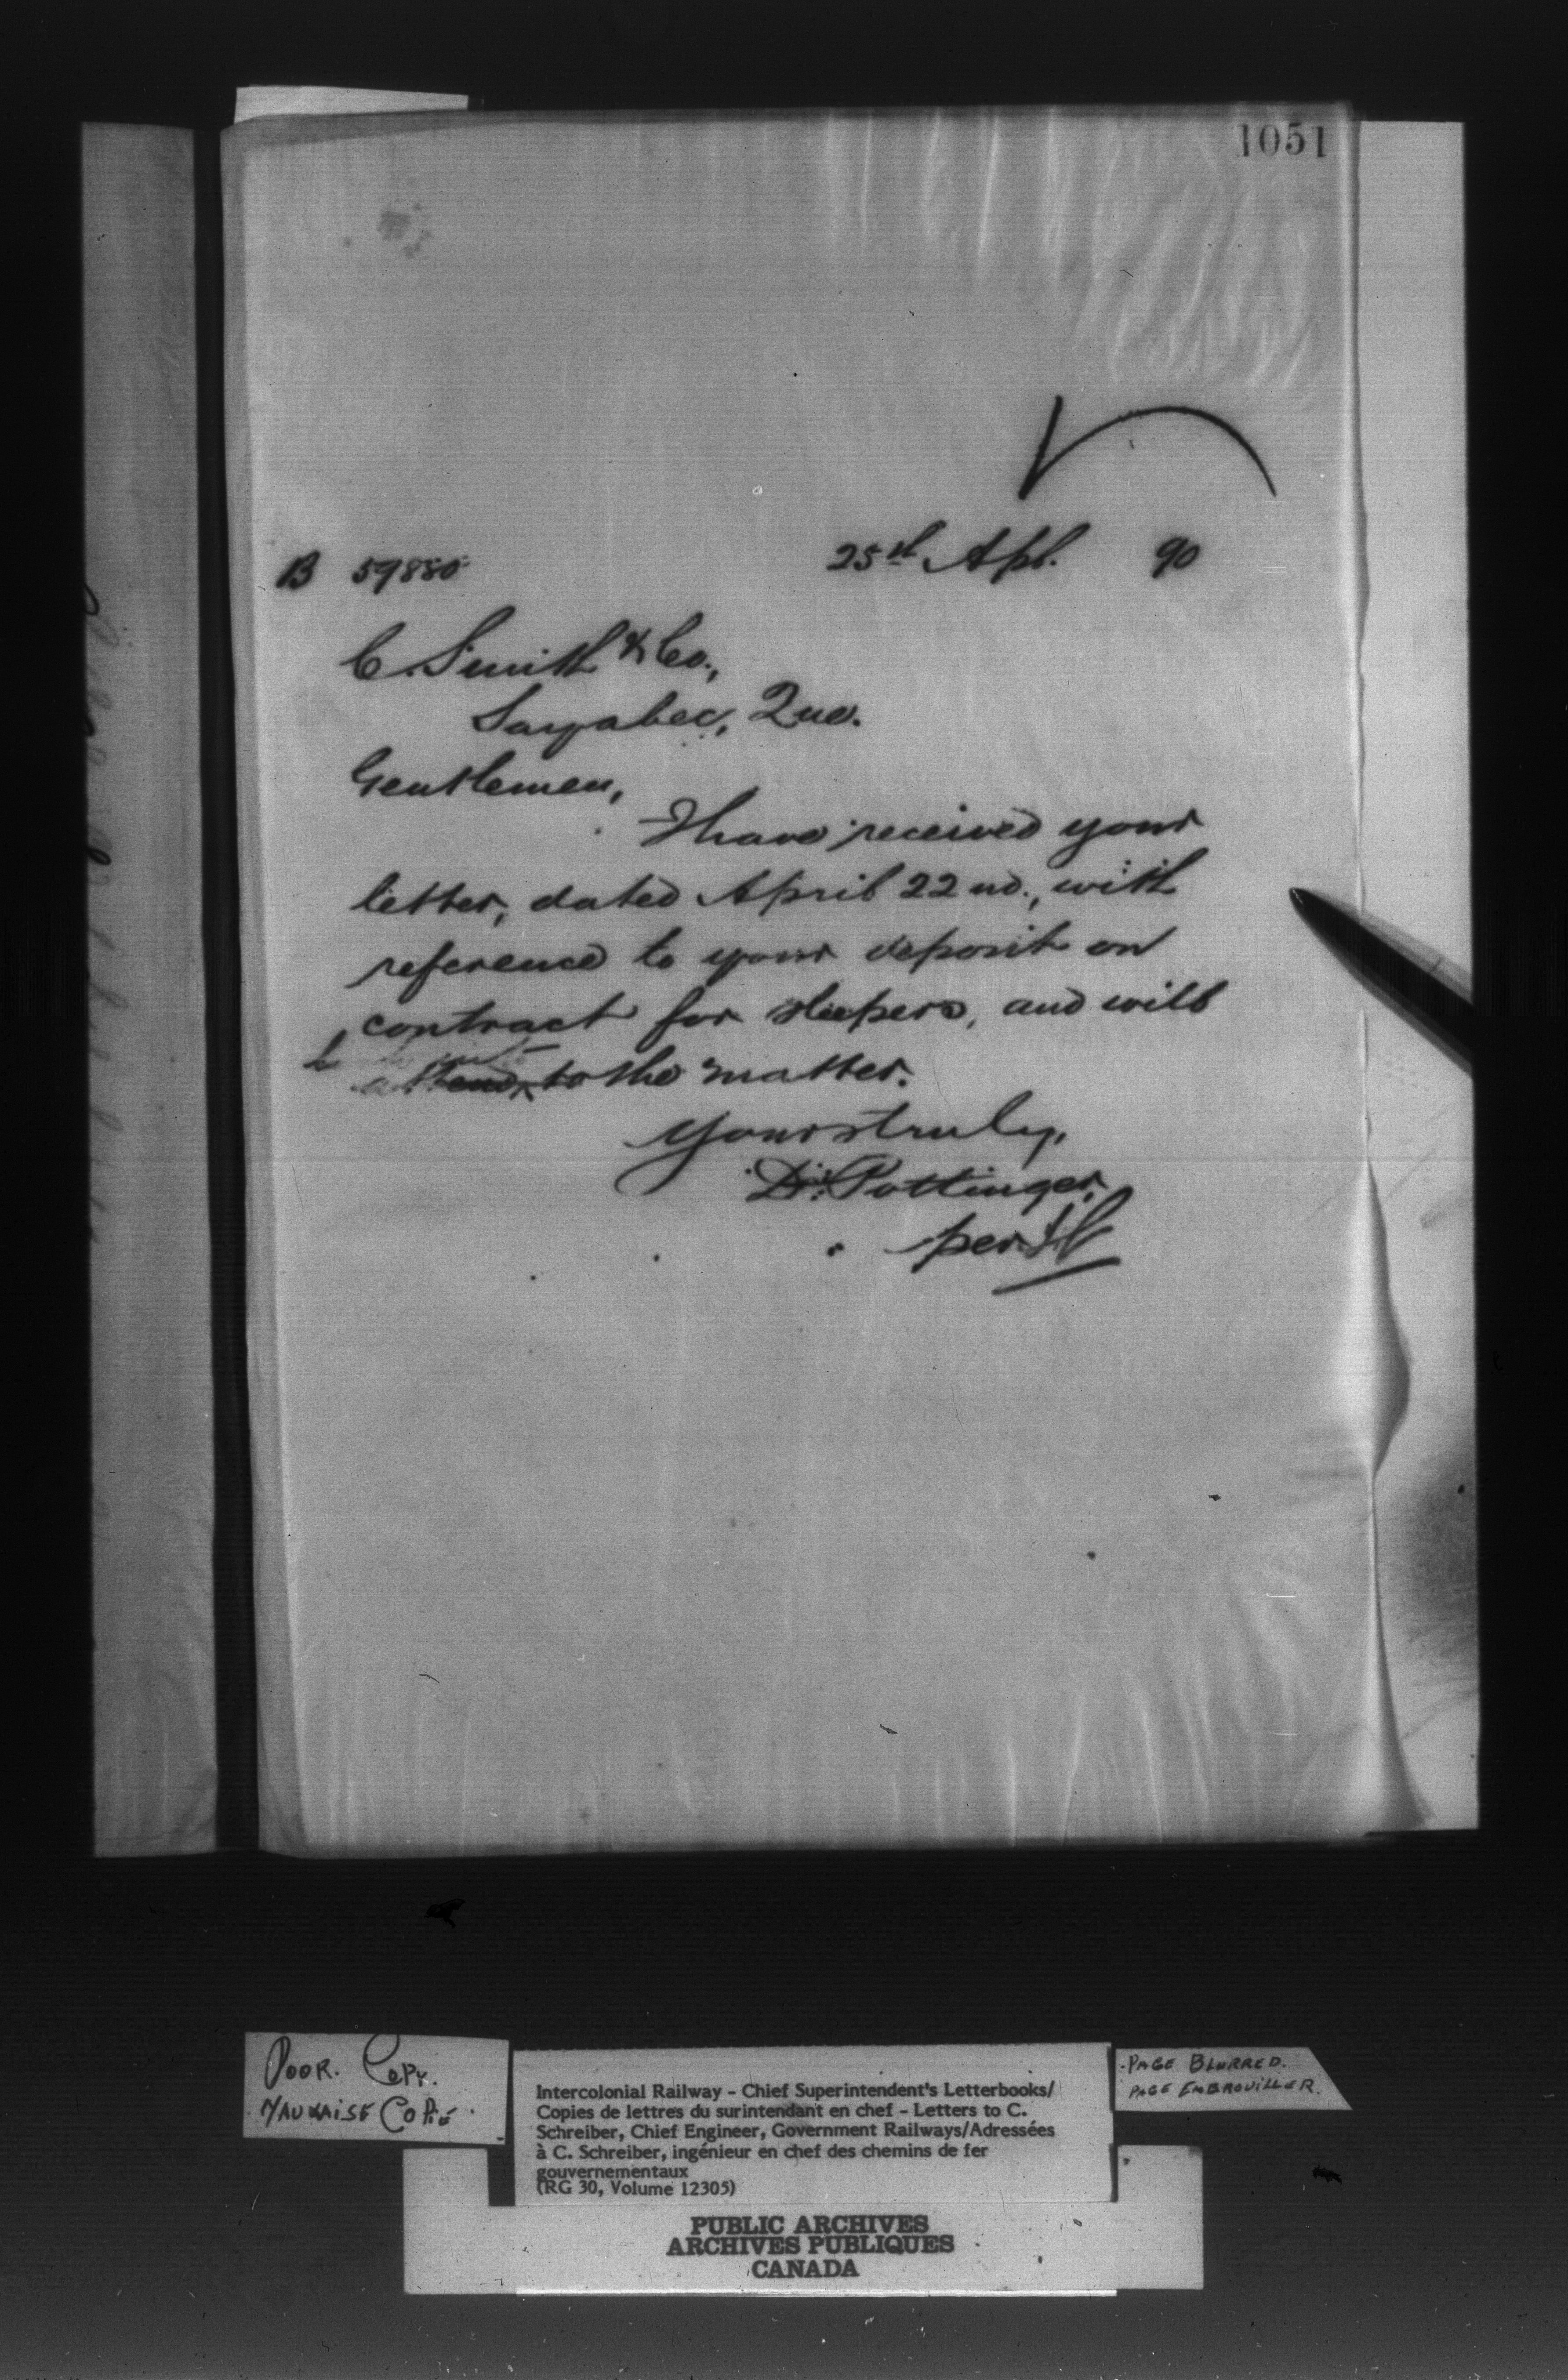 1051
B 59880 25th Apl. 90
C. Smith & Co.,
Sayabec, Que.
Gentlemen,
I have received your
letter, dated April 22nd., with
reference to your deposit on
contract for sleepers, and will
attend to the matter.
Yours truly,
D. Pottinger,
per
POOR. COPY.
MAUVAISE COPIE
Intercolonial Railway – Chief Superintendent's Letterbooks/
Copies de lettres du surintendant en chef – Letters to C.
Schreiber, Chief Engineer, Government Railways/Adressées
à C. Schreiber, ingénieur en chef des chemins de fer
gouvernementaux
(RG 30, Volume 12305)
PAGE BLURRED.
PAGE EMBROUILLER.
PUBLIC ARCHIVES
ARCHIVES PUBLIQUES
CANADA